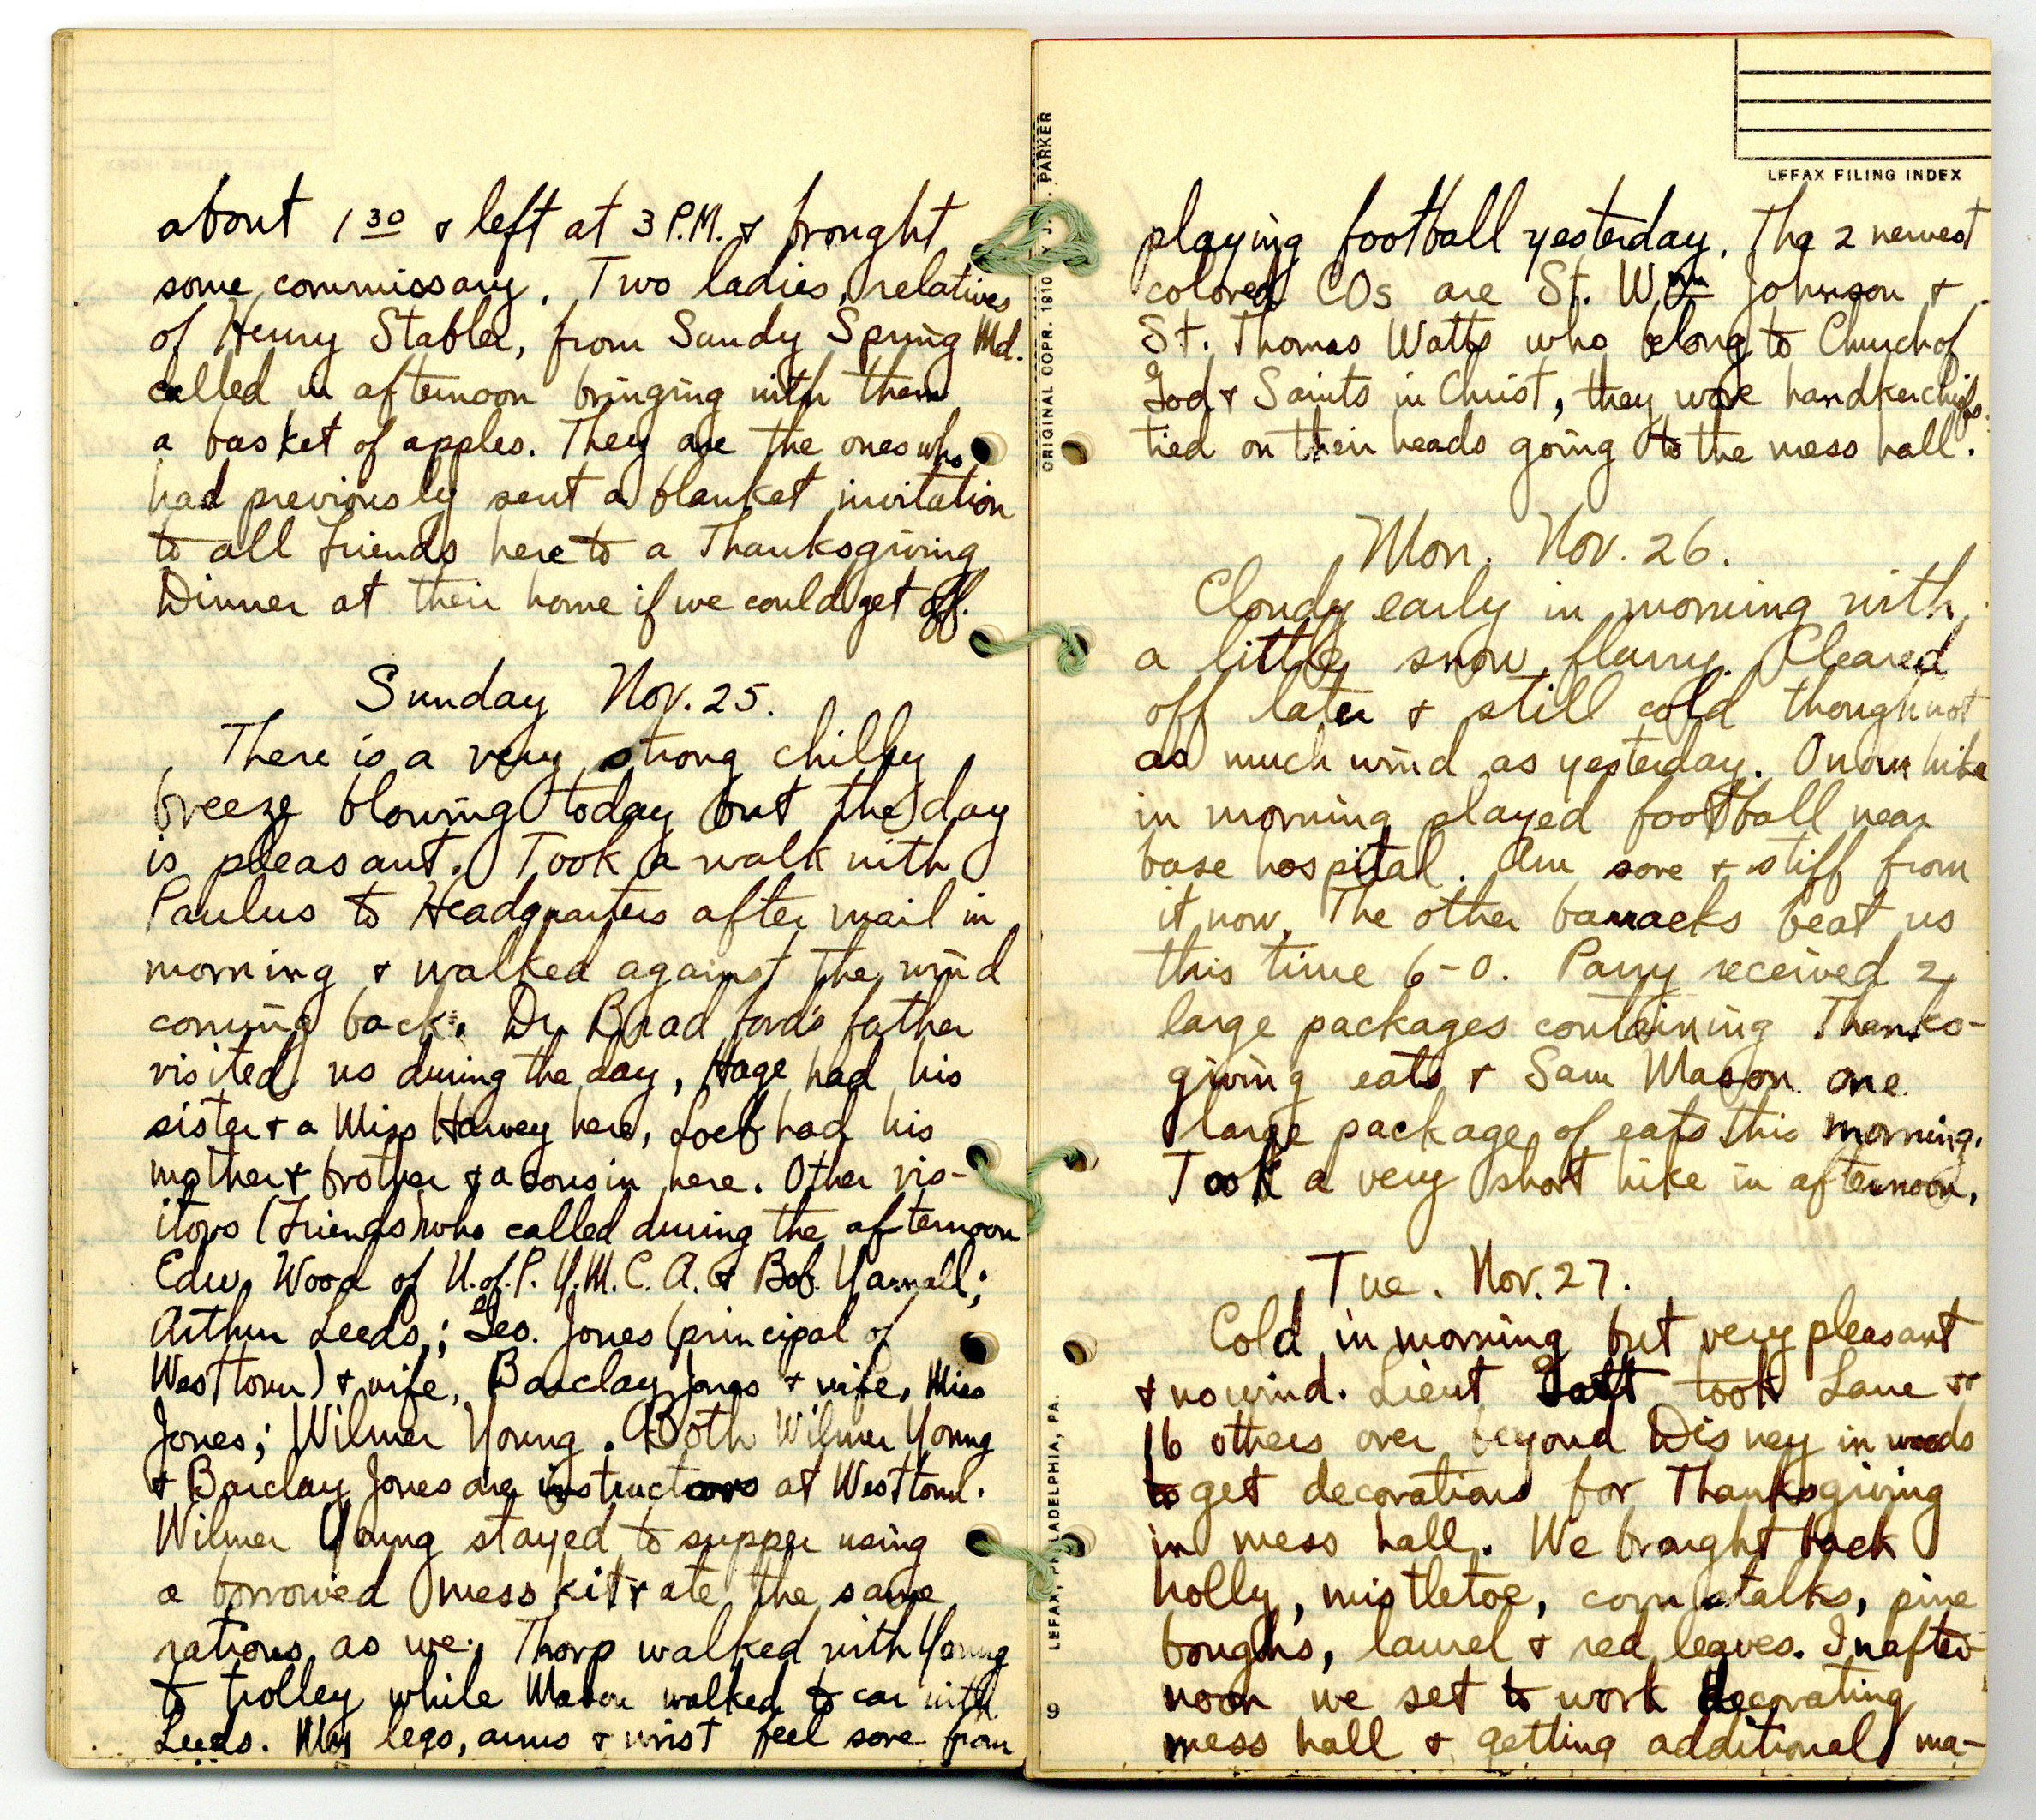 about 1 30 & left at 3 P.M. & brought
some commissary. Two ladies, relatives
of Henry Stabler, from Sandy Spring Md.
called in afternoon bringing with them
a basket of apples. They are the ones who
had previously sent a blanket invitation
to all Friends here to a Thanksgiving
Dinner at their home if we could get off.
Sunday Nov. 25.
There is a very strong chilly
breeze blowing today but the day
is pleasant. Took a walk with
Paulus to Headquarters after mail in
morning & walked against the wind
coming back. Dr. Bradford's father
visited us during the day, Hage had his
sister & a Miss Harvey here, Loeb had his
mother & brother & a cousin here. Other vis-
itors (Friends) who called during the afternoon
Edw. Wood of U. of. P. Y.M.C.A. & Bob Yarnall;
Arthur Leeds,; Geo. Jones (principal of
Westtown) & wife, Barclay Jones & wife, Miss
Jones; Wilmer Young. Both Wilmer Young
& Barclay Jones are instructors at Westtown.
Wilmer Young stayed to supper using
a borrowed mess kit & ate the same
rations as we. Thorp walked with Young
to trolley while Mason walked to car with
Leeds. My legs, arms & wrist feel sore from
ORIGINAL COPR. 1910 BY J. PARKER
LEFAX, PHILADELPHIA, PA.
9
LEFAX FILING INDEX
playing football yesterday. The 2 newest
colored COs are St. Wm Johnson &
St. Thomas Watts who belong to Church of
God & Saints in Christ, they wore handkerchiefs
tied on their heads going to the mess hall.
Mon. Nov. 26.
Cloudy early in morning with
a little snow flurry. Cleared
off later & still cold though not
as much wind as yesterday. On our hike
in morning played football near
base hospital. Am sore & stiff from
it now. The other barracks beat us
this time 6-0. Parry received 2
large packages containing Thanks-
giving eats & Sam Mason one
large package of eats this morning.
Took a very short hike in afternoon.
Tue. Nov. 27.
Cold in morning but very pleasant
& no wind. Lieut took Lane &
16 others over beyond Disney in woods
to get decorations for Thanksgiving
in mess hall. We brought back
holly, mistletoe, corn stalks, pine
boughs, laurel & red leaves. In after-
noon we set to work decorating
mess hall & getting additional ma-